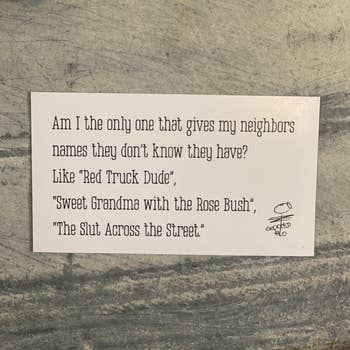 Am I the only one that gives my neighbors
names they don't know they have?
Like "Red Truck Dude",
"Sweet Grandma with the Rose Bush",
"The Slut Across the Street."